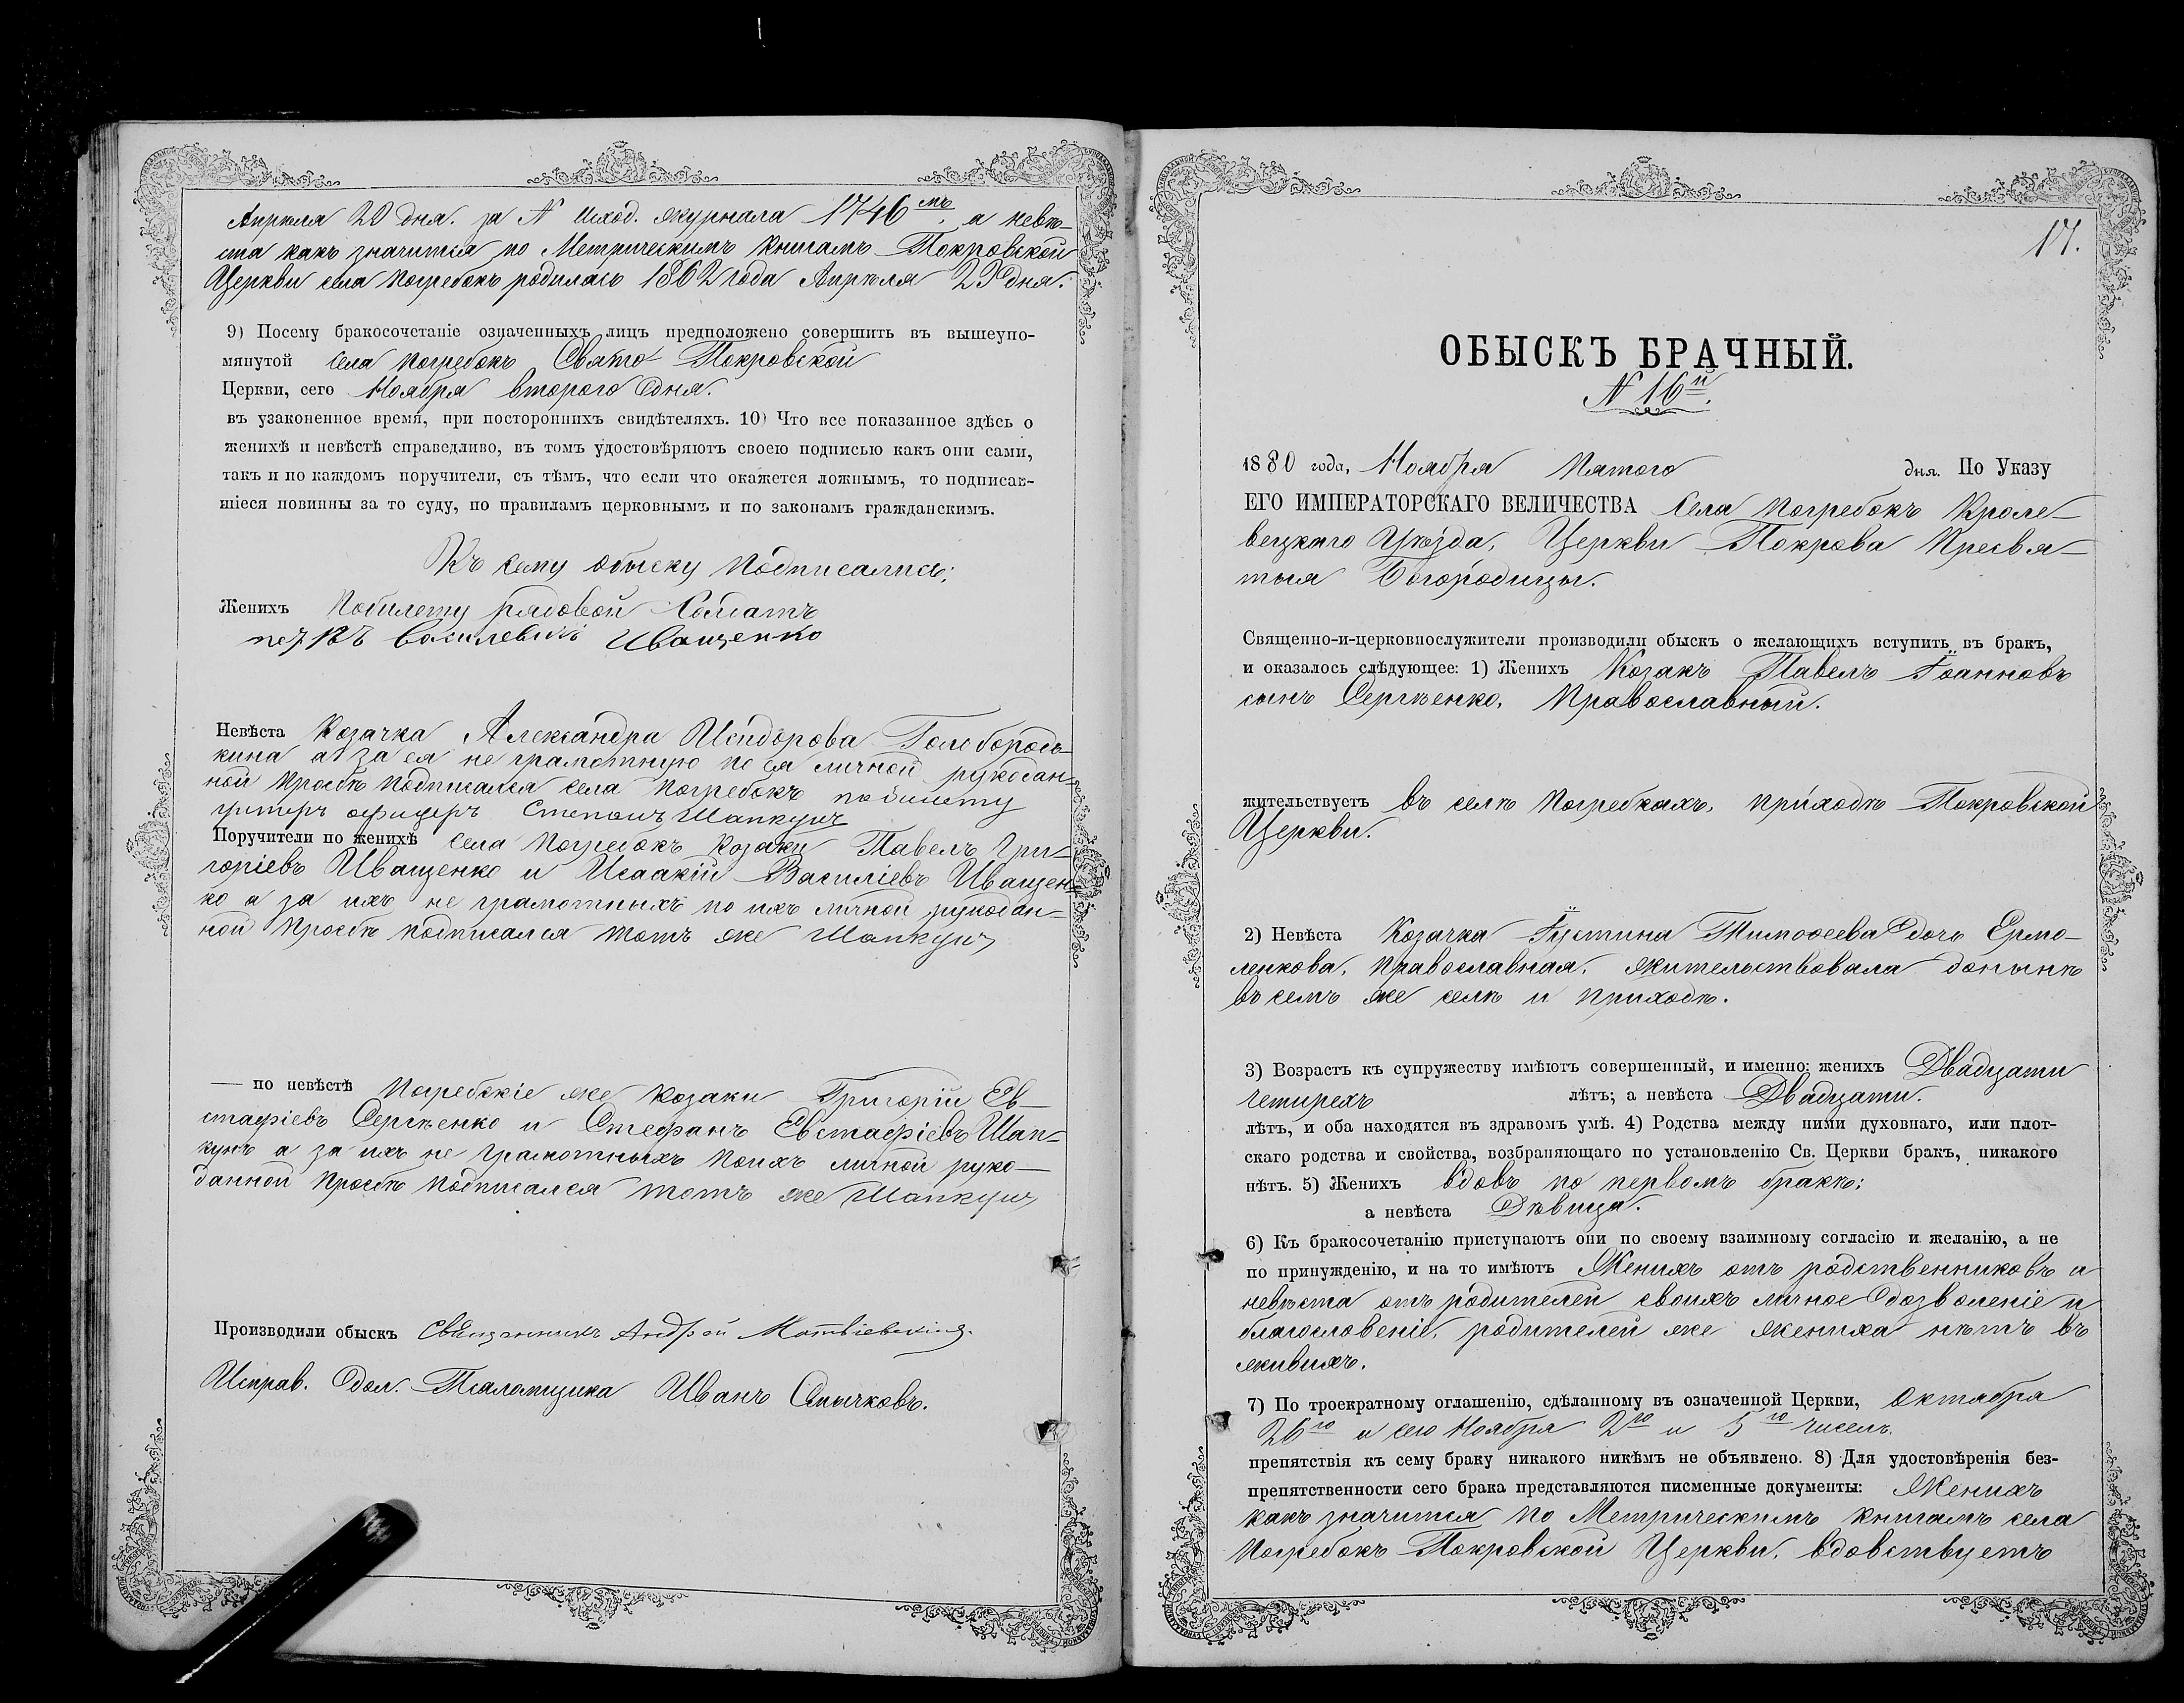 Апрѣля 20 дня. за № исход. журнала 1746мъ, а невѣ-
ста какъ значится по Метрическимъ книгамъ Покровской
Церкви села Погребокъ родилась 1862 года Апрѣля 23 дня.
9) Посему бракосочетаніе означенныхъ лицъ предположено совершить въ вышеупо-
мянутой села Погребокъ Свято Покровской
Церкви, сего Ноября второго дня.
въ узаконенное время, при постороннихъ свидѣтеляхъ. 10) Что все показанное здѣсь о
женихѣ и невѣстѣ справедливо, въ томъ удостовѣряютъ своею подписью какъ они сами,
такъ и по каждомъ поручители, съ тѣмъ, что если что окажется ложнымъ, то подписав-
шіеся повинны за то суду, по правиламъ церковнымъ и по законамъ гражданскимъ.
Къ сему обыску подписались:
Женихъ Побилету рядовой Солдатъ
Василевичъ Иващенко
Невѣста Козачка Александра Исидорова Голобородь-
кина а за ея не грамотную по ея личной рукодан-
ной просьбѣ подписался села Погребокъ побилету
унтеръ офицеръ Степанъ Шапкунъ
Поручители по женихѣ села Погребокъ козаки Павелъ Гри-
горіевъ Иващенко и Исаакій Василіевъ Иващен-
ко а за ихъ не грамотныхъ по ихъ личной рукодан-
ной просьбѣ подписался тотъ же Шапкунъ
— по невѣстѣ Погребскіе же козаки Григорій Ев-
стафіевъ Сергѣенко и Стефанъ Евстафіевъ Шап-
кунъ а за ихъ не грамотныхъ поихъ личной руко-
данной просьбѣ подписался тотъ же Шапкунъ
Производили обыскъ Священникъ Андрей Матвіевскій
Исправ. дол. Псаломщика Иванъ Смычковъ.
17.
ОБЫСКЪ БРАЧНЫЙ.
№ 16й.
1880 года, Ноября Пятого дня. По Указу
ЕГО ИМПЕРАТОРСКАГО ВЕЛИЧЕСТВА Села Погребокъ Кроле-
вецкаго Уѣзда, Церкви Покрова Пресвя-
тыя Богородицы.
Священно-и-церковнослужители производили обыскъ о желающихъ вступить въ бракъ,
и оказалось слѣдующее: 1) Женихъ Козакъ Павелъ Іоанновъ
сынъ Сергѣенко, Православный.
жительствуетъ въ селѣ Погребкахъ, приходѣ Покровской
Церкви.
2) Невѣста Козачка Іустина Тимофеева дочь Ермо-
ленкова, Православная, жительствовала донынѣ
въ семъ же селѣ и приходѣ.
3) Возрастъ къ супружеству имѣютъ совершенный, и именно: женихъ Двадцати
четирехъ лѣтъ; а невѣста Двадцати.
лѣтъ, и оба находятся въ здравомъ умѣ. 4) Родства между ними духовнаго, или плот-
скаго родства и свойства, возбраняющаго по установленію Св. Церкви бракъ, никакого
нѣтъ. 5) Женихъ вдовъ по первомъ бракѣ;
а невѣста Дѣвица.
6) Къ бракосочетанію приступаютъ они по своему взаимному согласію и желанію, а не
по принужденію, и на то имѣютъ Женихъ отъ родственниковъ а
невѣста отъ родителей своихъ личное дозволеніе и
благословеніе, родителей же жениха нѣтъ въ
живихъ.
7) По троекратному оглашенію, сдѣланному въ означенной Церкви, Октября
26го и сего Ноября 2го и 5го чиселъ.
препятствія къ сему браку никакого никѣмъ не объявлено. 8) Для удостовѣренія без-
препятственности сего брака представляются писменные документы: Женихъ
какъ значится по Метрическимъ книгамъ села
Погребокъ Покровской Церкви, вдовствуетъ